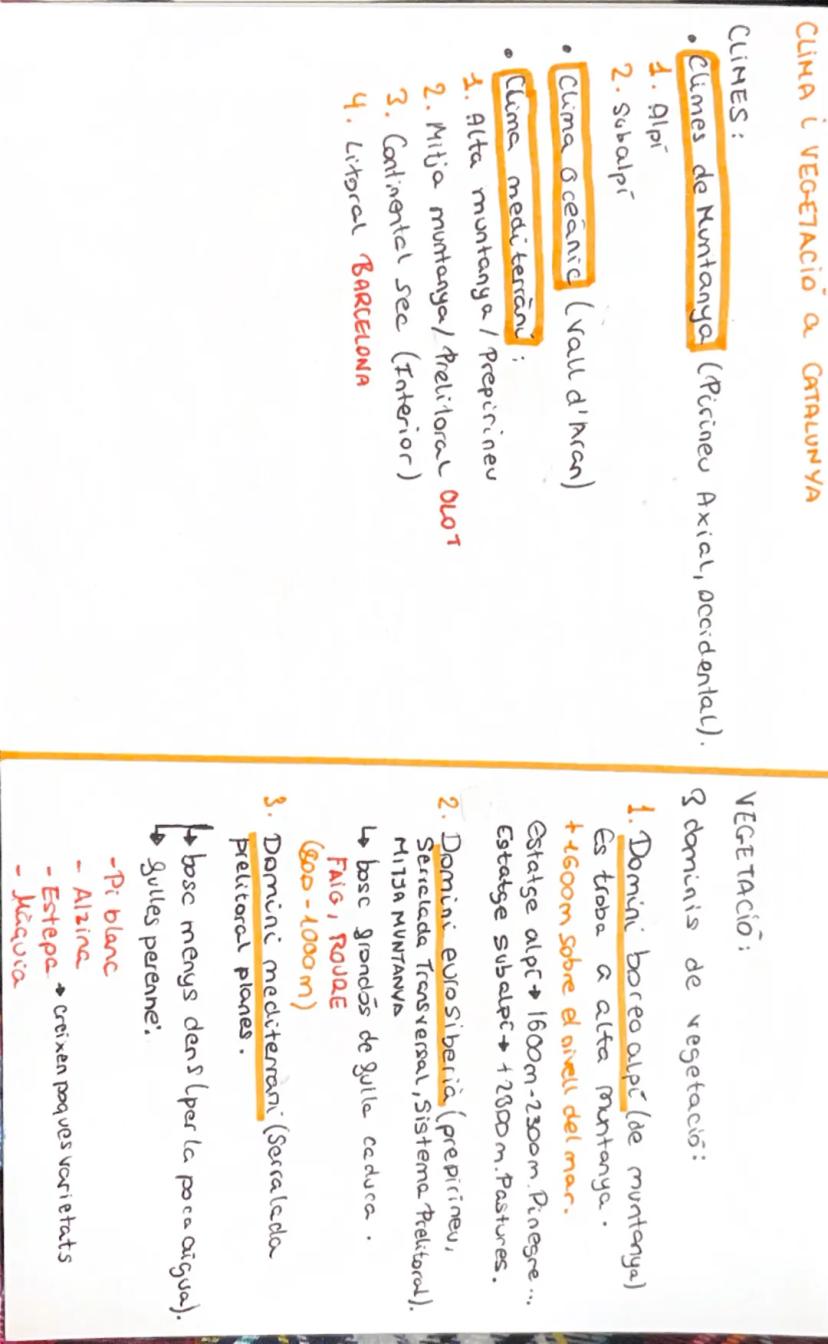 CLIMA i VEGETACIÓ a CATALUNYA
CLIMES:
• Climes de Muntanya (Pirineu Axial, occidental).
1. Alpí
2. Subalpí
• Clima oceànic (Vall d'Aran)
• Clima mediterràni:
1. Alta muntanya / Prepirineu
2. Mitja muntanya / Prelitoral OLOT
3. Continental sec (Interior)
4. Litoral BARCELONA
VEGETACIÓ:
3 dominis de vegetació:
1. Domini boreoalpí (de muntanya)
Es troba a alta muntanya.
+1600m sobre el nivell del mar.
Estatge alpí → 1600m-2300m. Pinegre...
Estatge subalpí → +2300m. Pastures.
2. Domini eurosiberià (prepirineu,
Serralada Transversal, Sistema Prelitoral).
MITJA MUNTANYA
↳ bosc grandós de fulla caduca.
FAIG, ROURE
(800-1000m)
3. Domini mediterràni (Serralada
prelitoral planes.
↳ bosc menys dens (per la poca aigua).
↳ fulles perenne.
- Pi blanc
- Alzina
- Estepa → creixen poques varietats
- Màquia